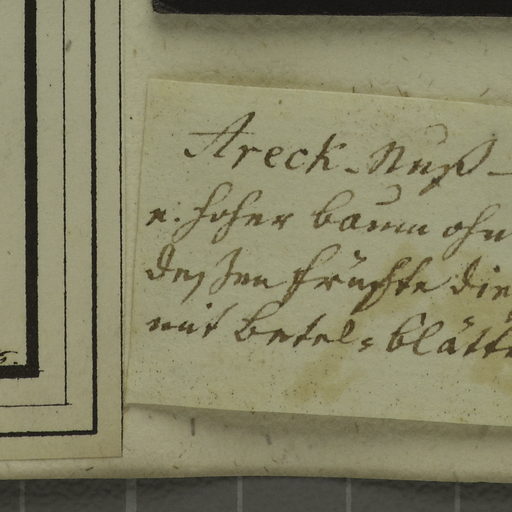 Areck-Nuß-
e. hoher baum ohn
deßen früchte die
mit betel-blätte